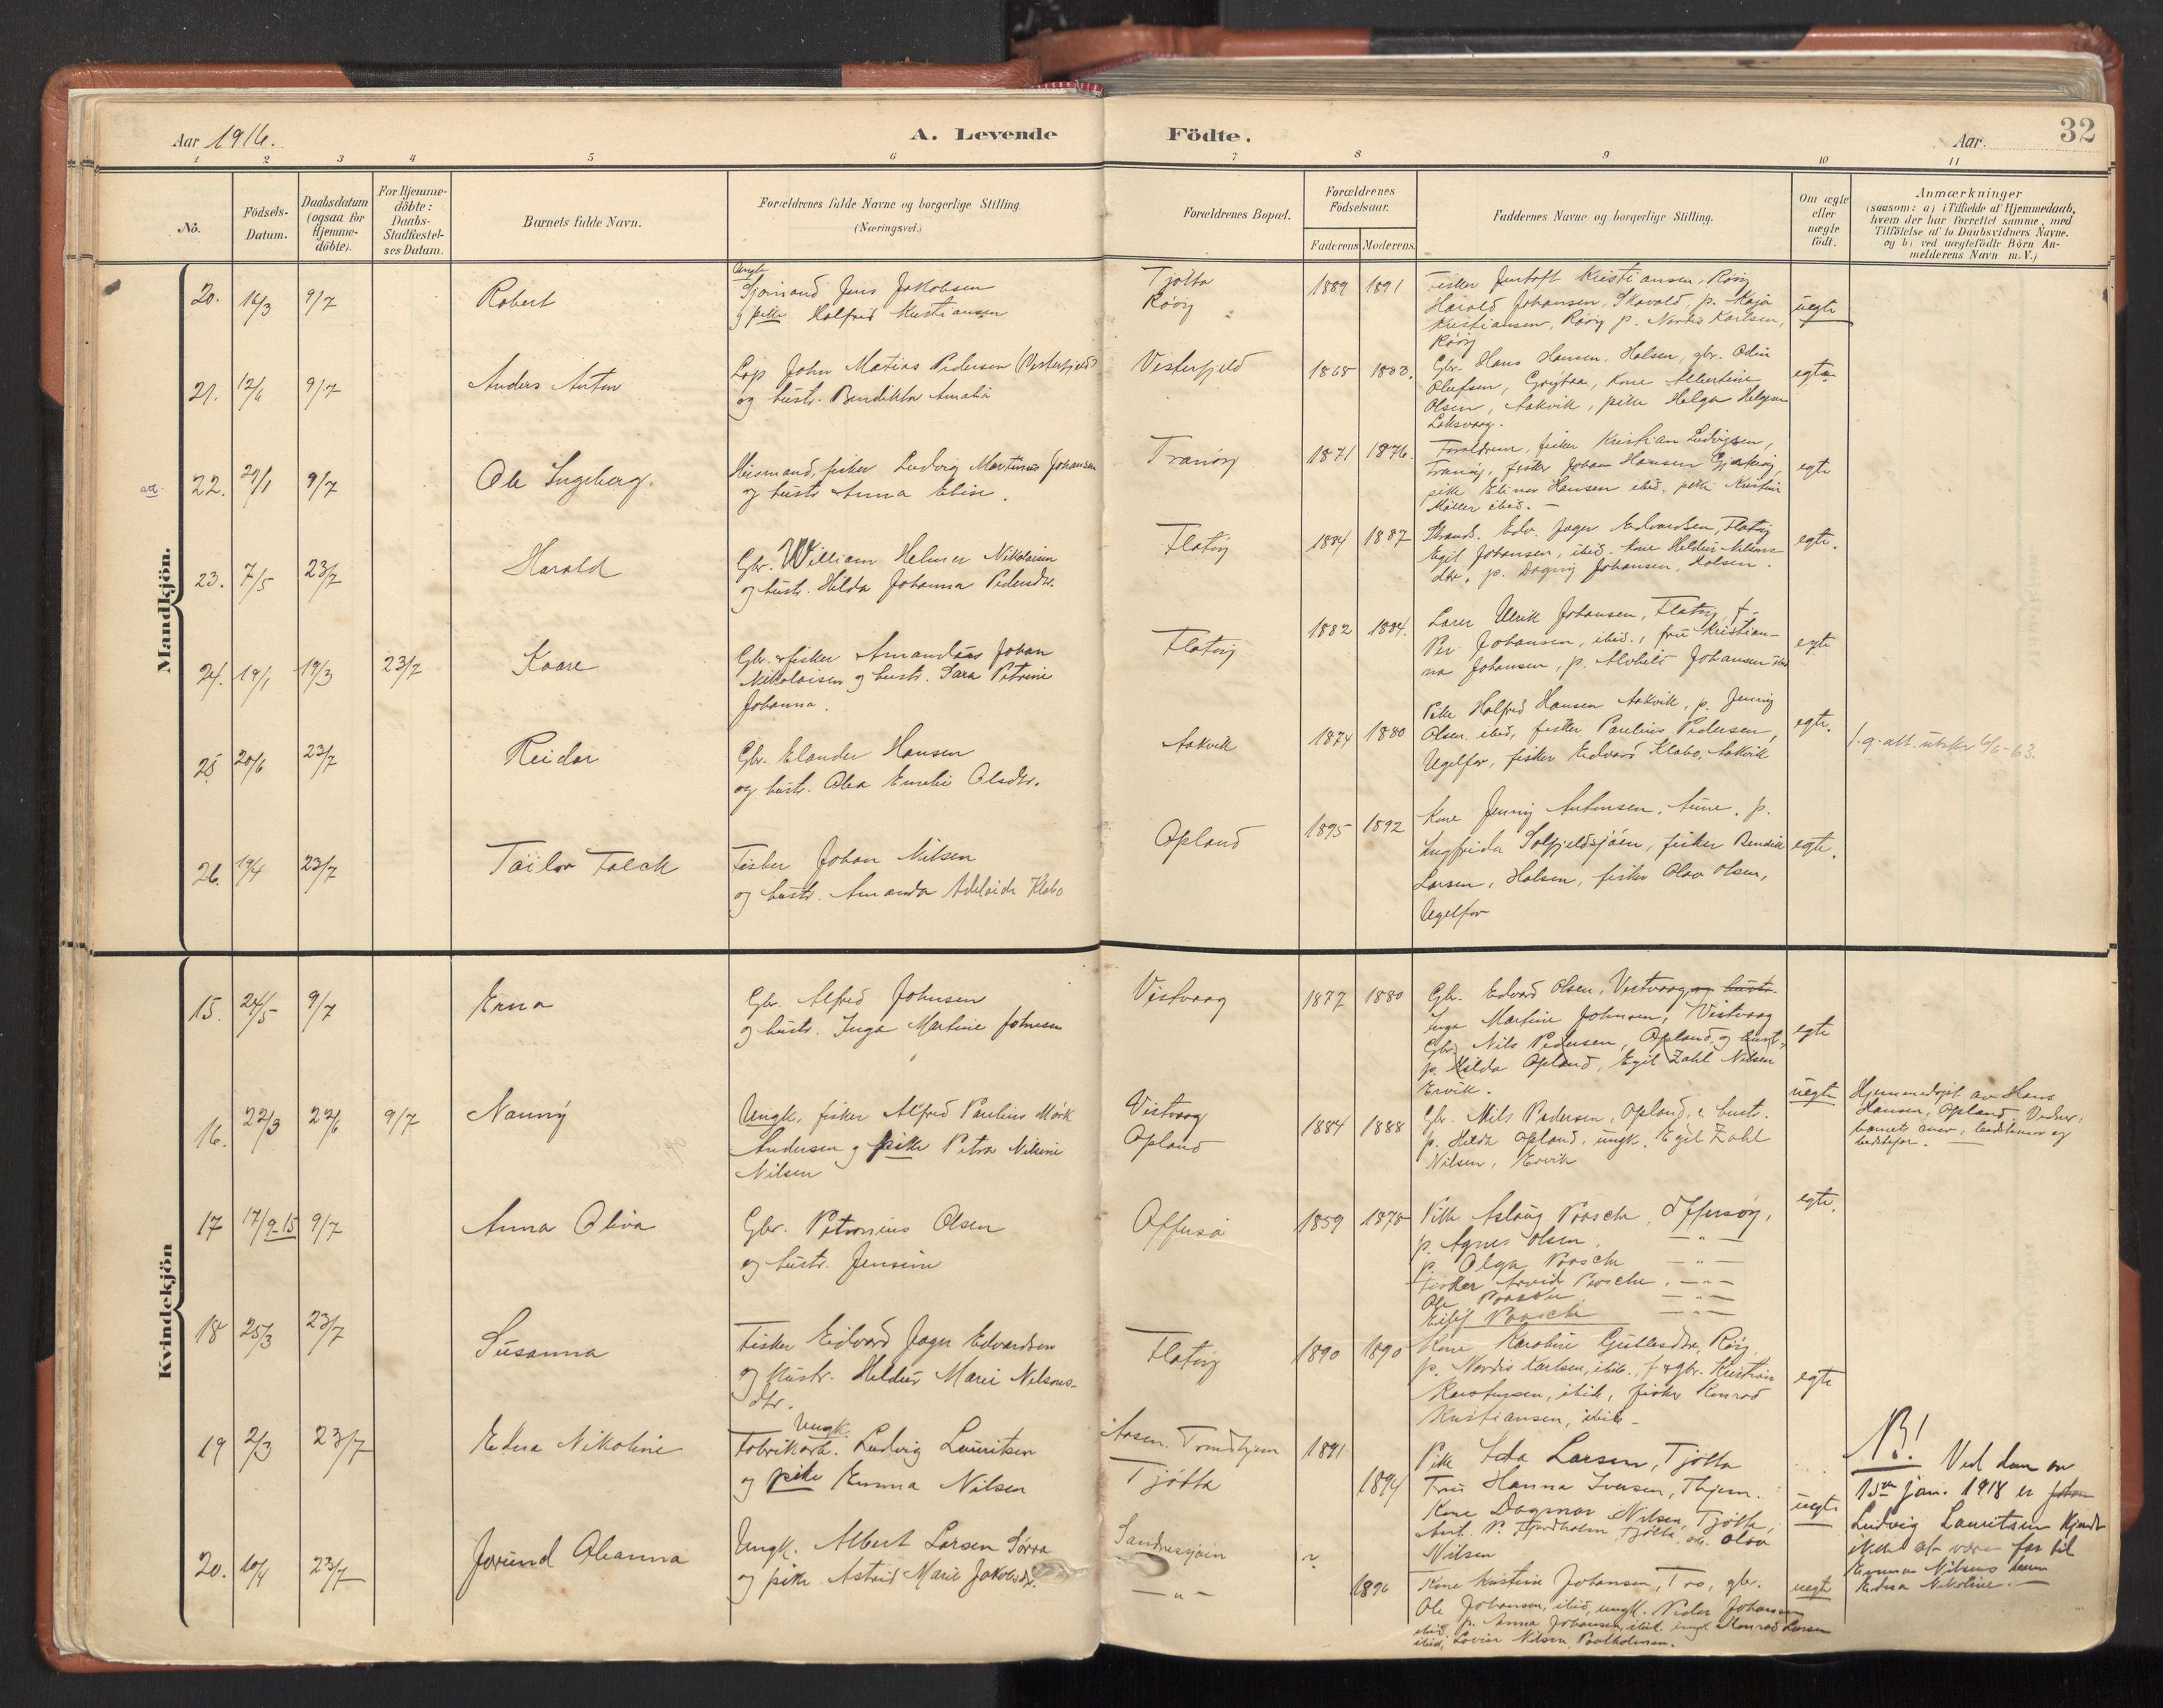 Aar 1916.
A. Levende Födte.
Aar
32
1 2 3 4 5 6 7 8 9 10 11
No.
Födsels-Datum.
Daabsdatum (ogsaa for Hjemme-döbte).
For Hjemme-döbte: Daabs-Stadfestel-ses Datum.
Barnets fulde Navn.
Forældrenes fulde Navne og borgerlige Stilling
(Næringsvei.)
Forældrenes Bopæl.
Forældrenes Födselsaar.
Faderens
Moderens
Faddernes Navne og borgerlige Stilling.
Om ægte eller uægte födt.
Anmærkninger
(saasom: a) i Tilfælde af Hjemmedaab,
hvem der har forrettet samme, med
Tilföielse af to Daabsvidners Navne.
og b) ved uægtefödte Börn An-
melderens Navn m. V.)
Mandkjön.
20. 16/3 9/7 Robert
Ungk.
Sjömand Jens Jakobsen
og pike Halfrid Kristiansen
Tjötta
Röög
1889 1891
Fisker Jentoft Kristiansen, Röög
Harald Johansen, Skavold, p. Kaja
Kristiansen, Röög p. Nordis Karlsen,
Röög
uegte
21. 12/6 9/7 Anders Anton
Lap John Matias Pedersen (Vesterfjeld)
og hustr. Bendikta Amalia
Vesterfjeld
1868 1883.
Gbr. Hans Hansen, Halsen, gbr. Odin
Olufsen, kone Albertine
Olsen, Aakvik, pike Helga Helgesen
egte
22. 29/1 9/7 Ole Ingeberg.
fisker Ludvig Martinus Johansen
og hustr Anna Elise.
Tranöy
1871 1876.
Forældrene, fisker Kristian Ludvigsen,
Tranöy, fisker Johan Hansen
pike Elinor Hansen ibid. pike Kristine
Möller ibid. —
egte
23. 7/5 23/7 Harald
Gbr. William Helmer Nikolaisen
og hustr. Hilda Johanna Pedersdtr.
Flatöy
1884 1887
Strands. Edv. Jager Edvardsen, Flatöy
Egil Johansen, ibid. kone Heldur Nelsons-
dtr, p. Dagny Johansen, Halsen.
egte.
24. 19/1 19/3 23/7 Kaare
Gbr. & fisker Amandus Johan
Nikolaisen og hustr. Sara Petrine
Johanna.
Flatöy
1882 1884.
Lærer Ulrik Johansen, Flatöy, f.
Per Johansen, ibid., fru Kristian-
na Johansen, p. Alvhild Johansen ibid
egte
25 20/6 23/7 Reidar
Gbr. Elander Hansen
og hustr. Olea Emelie Olsdtr.
Aakvik
1874 1880
Pike Halfrid Hansen Aakvik, p. Jenny
Olsen ibid, fisker Paulius Pedersen,
Ugelfor, fisker Edvard Klabo, Aakvik
egte.
f.g. att. utskr 6/6-63.
26. 19/4 23/7 Tailor Falck
Fisker Johan Nilsen
og hustr. Amanda Adelaide Klabo
Opland
1895 1892
Kone Jenny Antonsen, Aune, p.
Ingfrida Solfjeldsjöen, fisker Bendik
Larsen, Halsen, fisker Olav Olsen,
Ugelfor
egte.
Kvindekjön
15. 24/5 9/7 Erna
Gbr. Alfred Johnsen
og hustr. Inga Martine Johnsen
Vistvaag
1877 1880
Gbr. Edvard Olsen, Vestvaag og hustr.
Inga Martine Johnsen, Vistvaag
Gbr. Nils Pedersen, Opland, og hustr.
p. Hilda Opland, Egil Zahl Nilsen
Ervik.
egte
16. 22/3 22/6 9/7 Nanny
Ungk. fisker Alfred Paulius Mörk
Andersen og pike Petra Nilsine
Nilsen
Vistvaag
Opland
1884 1888
Gbr. Nils Pedersen, Opland, & hustr.
p. Hilda Opland, ungk. Egil Zahl
Nilsen, Ervik
uegte
Hjemmedöpt av Hans
Hansen, Opland. Vidner:
barnets mor, bedstemor og
bedstefar. —
17 17/9-15 9/7 Anna Oliva
Gbr. Petronius Olsen
og hustr. Jensine
Offersö
1859 1878
Pike Aslaug Paasche, Offersöy,
p. Agnes Olsen, — " —
p. Olga Paasche — " —
Fisker Arvid Paasche, — " —
Ole Paasche — " —
Paasche — " —
egte.
18 25/3 23/7 Susanna
Fisker Edvard Jager Edvardsen
og hustr. Heldur Marie Nelsons-
dtr.
Flatöy
1890 1890
Kone Karoline Röög,
p. Nordis Karlsen, ibid., f. & gbr. Kristian
Kristensen, ibid, fisker Konrad
Kristiansen, ibid. —
egte
19 2/3 23/7 Edna Nikoline
Ungk.
Fabrikarb. Ludvig Lauritsen
og pike Emma Nilsen
Aasen. Trondhjem
Tjötta
1891
1894
Pike Ida Larsen, Tjötta
Fru Hanna Iversen, Thjem.
Kone Dagmar Nilsen, Tjötta,
Tjötta, Olav
Nilsen
uegte
NB! Ved dom av
15de jan. 1918 er
Ludvig Lauritsen kjendt
ikke at være far til
Emma Nilsens barn
Edna Nikoline. —
20. 10/4 23/7 Jorund Oleanna
Ungk. Albert Larsen Sörra
og pike Astrid Marie Jakobsdtr.
Sandnessjöen
— " —
?
1896
Kone Kristine Johansen, Tro, gbr.
Ole Johansen, ibid, ungk. Peder Johansen
ibid, p. Anna Johansen, ibid. ungk Konrad Larsen
ibid, Lovise Nilsen,
uegte